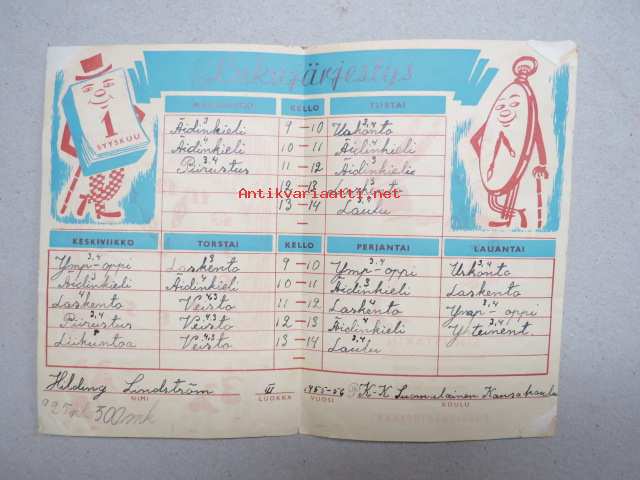 Lukujärjestys
1
SYYSKUU
MAANANTAI KELLO TIISTAI
Äidinkieli 3 9-10 Uskonto 3,4
Äidinkieli 4 10-11 Äidinkieli 4
Piirustus 3,4 11-12 Äidinkieli 3
12-13 Laskento
13-14 Laulu
Antikvariaatti.net
KESKIVIIKKO TORSTAI KELLO PERJANTAI LAUANTAI
Ymp-oppi 3,4 Laskento 3 9-10 Ymp-oppi 3,4 Uskonto 3,4
Äidinkieli Äidinkieli 10-11 Äidinkieli 3 Laskento
Laskento 4 Veisto 4,3 11-12 Laskento 4 Ymp-oppi 3,4
Piirustus 3,4 Veisto 4,3 12-13 Äidinkieli 4 Yhteinent. 3,4
Liikuntoa Veisto 4,3 13-14 Laulu 3,4
Hilding Lindström III 1955-56 K-K Suomalainen Kansakoulu
NIMI LUOKKA VUOSI KOULU
500mk